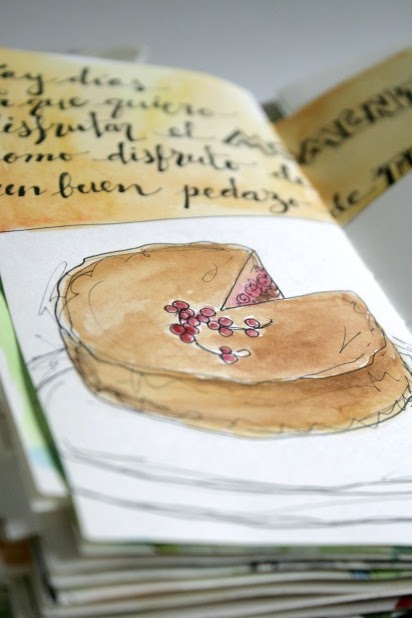 Hay días
que quiero
disfrutar el
como disfruto de
un buen pedazo de